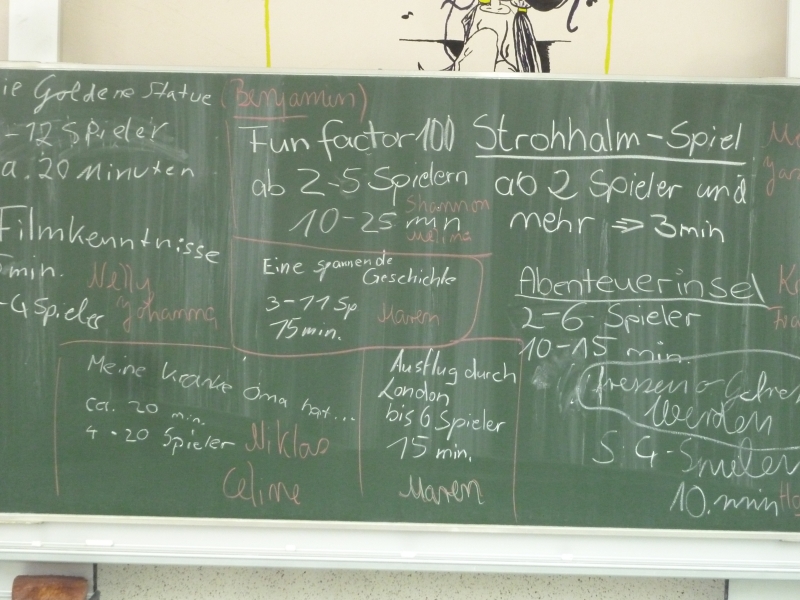 ie Goldene Statue (Benjamin)
-12 Spieler
a. 20 Minuten
Filmkenntnisse
5min.
Nelly
Johanna
-4 Spieler
Fun factor 100
ab 2-5 Spielern
10-25 min
Shannon
Melina
Strohhalm-Spiel
ab 2 Spieler und
mehr ⇒ 3min
Eine spannende
Geschichte
3-11 Sp
15 min.
Maren
Abenteuerinsel
2-6 Spieler
10-15 min.
Meine kranke Oma hat...
ca. 20 min.
4-20 Spieler
Niklas
Celine
Ausflug durch
London
bis 6 Spieler
15 min.
Maren
fressen o. Gefre
werden
4-Spieler
10.min